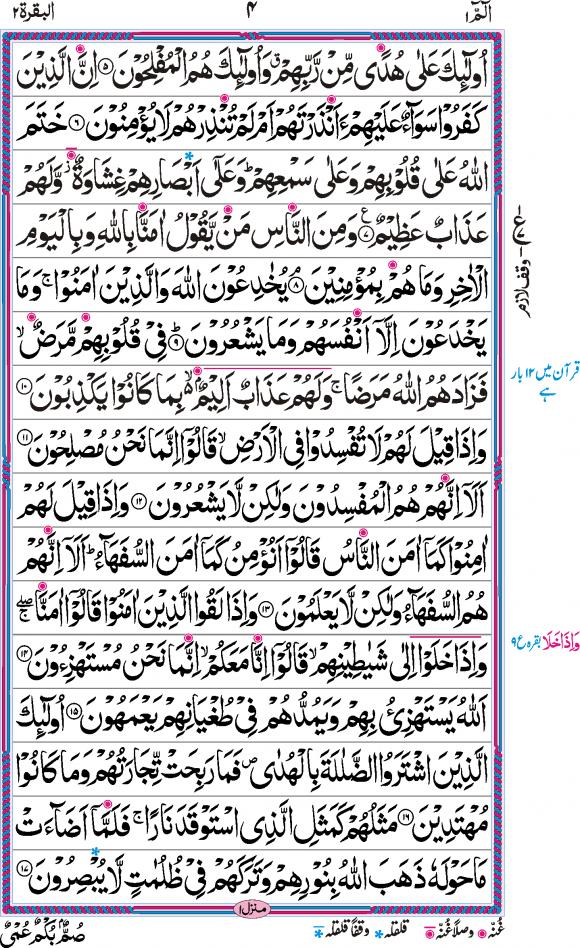 الٓمّٓ ۱ ۴ البقرة ۲
اُولٰٓئِكَ عَلٰی هُدًی مِّنْ رَّبِّهِمْ ۗ وَاُولٰٓئِكَ هُمُ الْمُفْلِحُوْنَ ۝۵ اِنَّ الَّذِیْنَ
كَفَرُوْا سَوَآءٌ عَلَیْهِمْ ءَاَنْذَرْتَهُمْ اَمْ لَمْ تُنْذِرْهُمْ لَا یُؤْمِنُوْنَ ۝۶ خَتَمَ
اللهُ عَلٰی قُلُوْبِهِمْ وَعَلٰی سَمْعِهِمْ ؕ وَعَلٰۤی اَبْصَارِهِمْ غِشَاوَةٌ ؗ وَّلَهُمْ
عَذَابٌ عَظِیْمٌ ۝۷ ع وَمِنَ النَّاسِ مَنْ یَّقُوْلُ اٰمَنَّا بِاللهِ وَبِالْیَوْمِ
الْاٰخِرِ وَمَا هُمْ بِمُؤْمِنِیْنَ ۝۸ یُخٰدِعُوْنَ اللهَ وَالَّذِیْنَ اٰمَنُوْا ۚ وَمَا
یَخْدَعُوْنَ اِلَّاۤ اَنْفُسَهُمْ وَمَا یَشْعُرُوْنَ ۝۹ؕ فِیْ قُلُوْبِهِمْ مَّرَضٌ ۙ
فَزَادَهُمُ اللهُ مَرَضًا ۚ وَلَهُمْ عَذَابٌ اَلِیْمٌۢ ۙ۬ بِمَا كَانُوْا یَكْذِبُوْنَ ۝۱۰
وَاِذَا قِیْلَ لَهُمْ لَا تُفْسِدُوْا فِی الْاَرْضِ ۙ قَالُوْۤا اِنَّمَا نَحْنُ مُصْلِحُوْنَ ۝۱۱
اَلَاۤ اِنَّهُمْ هُمُ الْمُفْسِدُوْنَ وَلٰكِنْ لَّا یَشْعُرُوْنَ ۝۱۲ وَاِذَا قِیْلَ لَهُمْ
اٰمِنُوْا كَمَاۤ اٰمَنَ النَّاسُ قَالُوْۤا اَنُؤْمِنُ كَمَاۤ اٰمَنَ السُّفَهَآءُ ؕ اَلَاۤ اِنَّهُمْ
هُمُ السُّفَهَآءُ وَلٰكِنْ لَّا یَعْلَمُوْنَ ۝۱۳ وَاِذَا لَقُوا الَّذِیْنَ اٰمَنُوْا قَالُوْۤا اٰمَنَّا ۖۚ
وَاِذَا خَلَوْا اِلٰی شَیٰطِیْنِهِمْ ۙ قَالُوْۤا اِنَّا مَعَكُمْ ۙ اِنَّمَا نَحْنُ مُسْتَهْزِءُوْنَ ۝۱۴
اَللهُ یَسْتَهْزِئُ بِهِمْ وَیَمُدُّهُمْ فِیْ طُغْیَانِهِمْ یَعْمَهُوْنَ ۝۱۵ اُولٰٓئِكَ
الَّذِیْنَ اشْتَرَوُا الضَّلٰلَةَ بِالْهُدٰی ۪ فَمَا رَبِحَتْ تِّجَارَتُهُمْ وَمَا كَانُوْا
مُهْتَدِیْنَ ۝۱۶ مَثَلُهُمْ كَمَثَلِ الَّذِی اسْتَوْقَدَ نَارًا ۚ فَلَمَّاۤ اَضَآءَتْ
مَا حَوْلَهٗ ذَهَبَ اللهُ بِنُوْرِهِمْ وَتَرَكَهُمْ فِیْ ظُلُمٰتٍ لَّا یُبْصِرُوْنَ ۝۱۷
وقف لازم
قرآن میں ۱۲ بار
ہے
وَاِذَا خَلَا بقرہ ع ۹
منزل ۱
غُنّہ وصلًا غُنّہ * قلقلہ * وقفًا قلقلہ
صُمٌّۢ بُكْمٌ عُمْیٌ